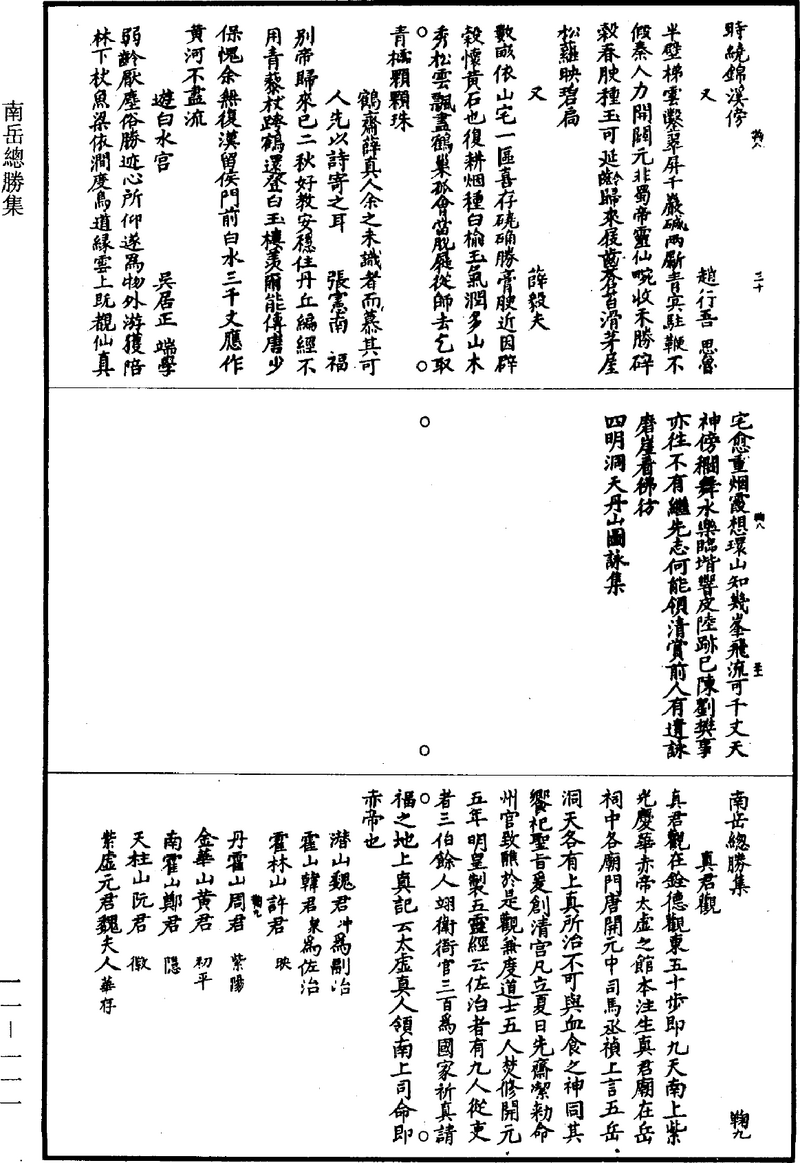 南岳總勝集
時繞錦溪傍
又　趙行吾　思魯
半壁梯雲鑿翠屏千巖磩兩斸青冥駐鞭不
假秦人力開闢元非蜀帝靈仙畹收禾勝碎
穀春腴種玉可延齡歸來屐齒蒼苔滑茅屋
松蘿映碧扃
又　薛毅夫
數畝依山宅一區喜存磽确勝膏腴近因辟
穀懷黃石也復耕烟種白榆玉氣潤多山木
秀松雲飄盡鶴巢孤會當脫屣從師去乞取
青櫺顆顆珠
鶴齋薛真人余之未識者而慕其可
人先以詩寄之耳　張憲南　福
別帝歸來已二秋好教安穩住丹丘編經不
用青藜杖跨鶴還登白玉樓羨爾能傳唐少
保愧余無復漢留侯門前白水三千丈應作
黃河不盡流
遊白水宮　吳居正　端學
弱齡厭塵俗勝迹心所仰遂爲物外游獲陪
林下杖魚梁依澗度鳥道緣雲上既觀仙真
宅愈重烟霞想環山知幾峯飛流可千丈天
神傍欄舞水樂臨堦響皮陸跡已陳劉樊事
亦往不有繼先志何能領清賞前人有遺詠
磨崖看彿彷
四明洞天丹山圖詠集
南岳總勝集　鞠九
真君觀
真君觀在銓德觀東五十步即九天南上紫
光慶華赤帝太虛之館本注生真君廟在岳
祠中各廟門唐開元中司馬丞禎上言五岳
洞天各有上真所治不可與血食之神同其
饗祀聖旨爰創清宮凡立夏日先齋潔勑命
州官致醮於是觀兼度道士五人焚修開元
五年明皇製五靈經云佐治者有九人從吏
者三伯餘人翊衡衙官三百爲國家祈真請
福之地上真記云太虛真人領南上司命即
赤帝也
潛山魏君冲爲副治
霍山韓君衆爲佐治
霍林山許君　映
丹霍山周君　紫陽
金華山黃君　初平
南霍山鄭君　隱
天柱山阮君　徽
紫虛元君魏夫人華存
一一―一一一